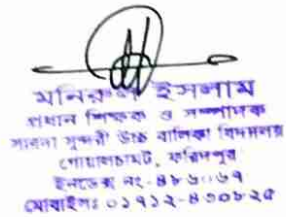 মনিরুল ইসলাম
প্রধান শিক্ষক ও সম্পাদক
সারদা সুন্দরী উচ্চ বালিকা বিদ্যালয়
গোয়ালচামট, ফরিদপুর
ইনডেক্স নং- ৪৮৬০৬৭
মোবাইলঃ ০১৭১২-৪৩০৮২৫